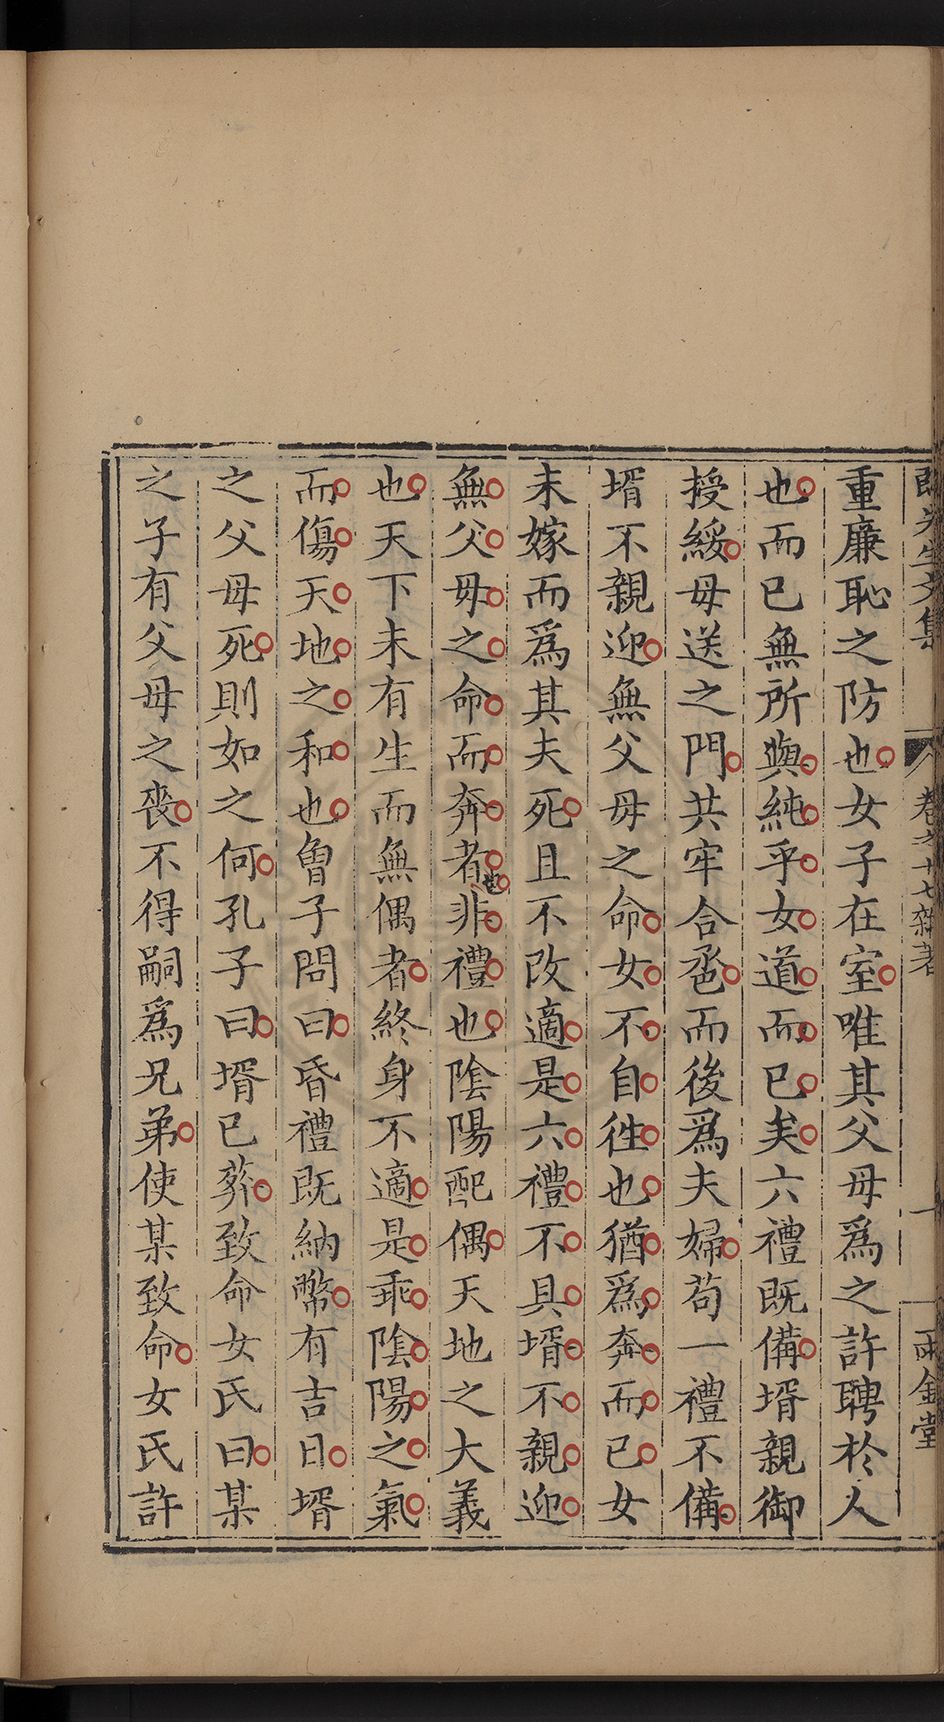 先生文集
卷之十七雜著
一
兩金堂
重廉恥之防也女子在室唯其父母爲之許聘於人
也而已無所與純乎女道而已矣六禮既備壻親御
授綏母送之門共牢合巹而後爲夫婦苟一禮不備
壻不親迎無父母之命女不自徃也猶爲奔而已女
未嫁而爲其夫死且不改適是六禮不具壻不親迎
無父母之命而奔者也非禮也陰陽配偶天地之大義
也天下未有生而無偶者終身不適是乖陰陽之氣
而傷天地之和也曾子問曰昏禮既納幣有吉日壻
之父母死則如之何孔子曰壻已葬致命女氏曰某
之子有父母之喪不得嗣爲兄弟使某致命女氏許